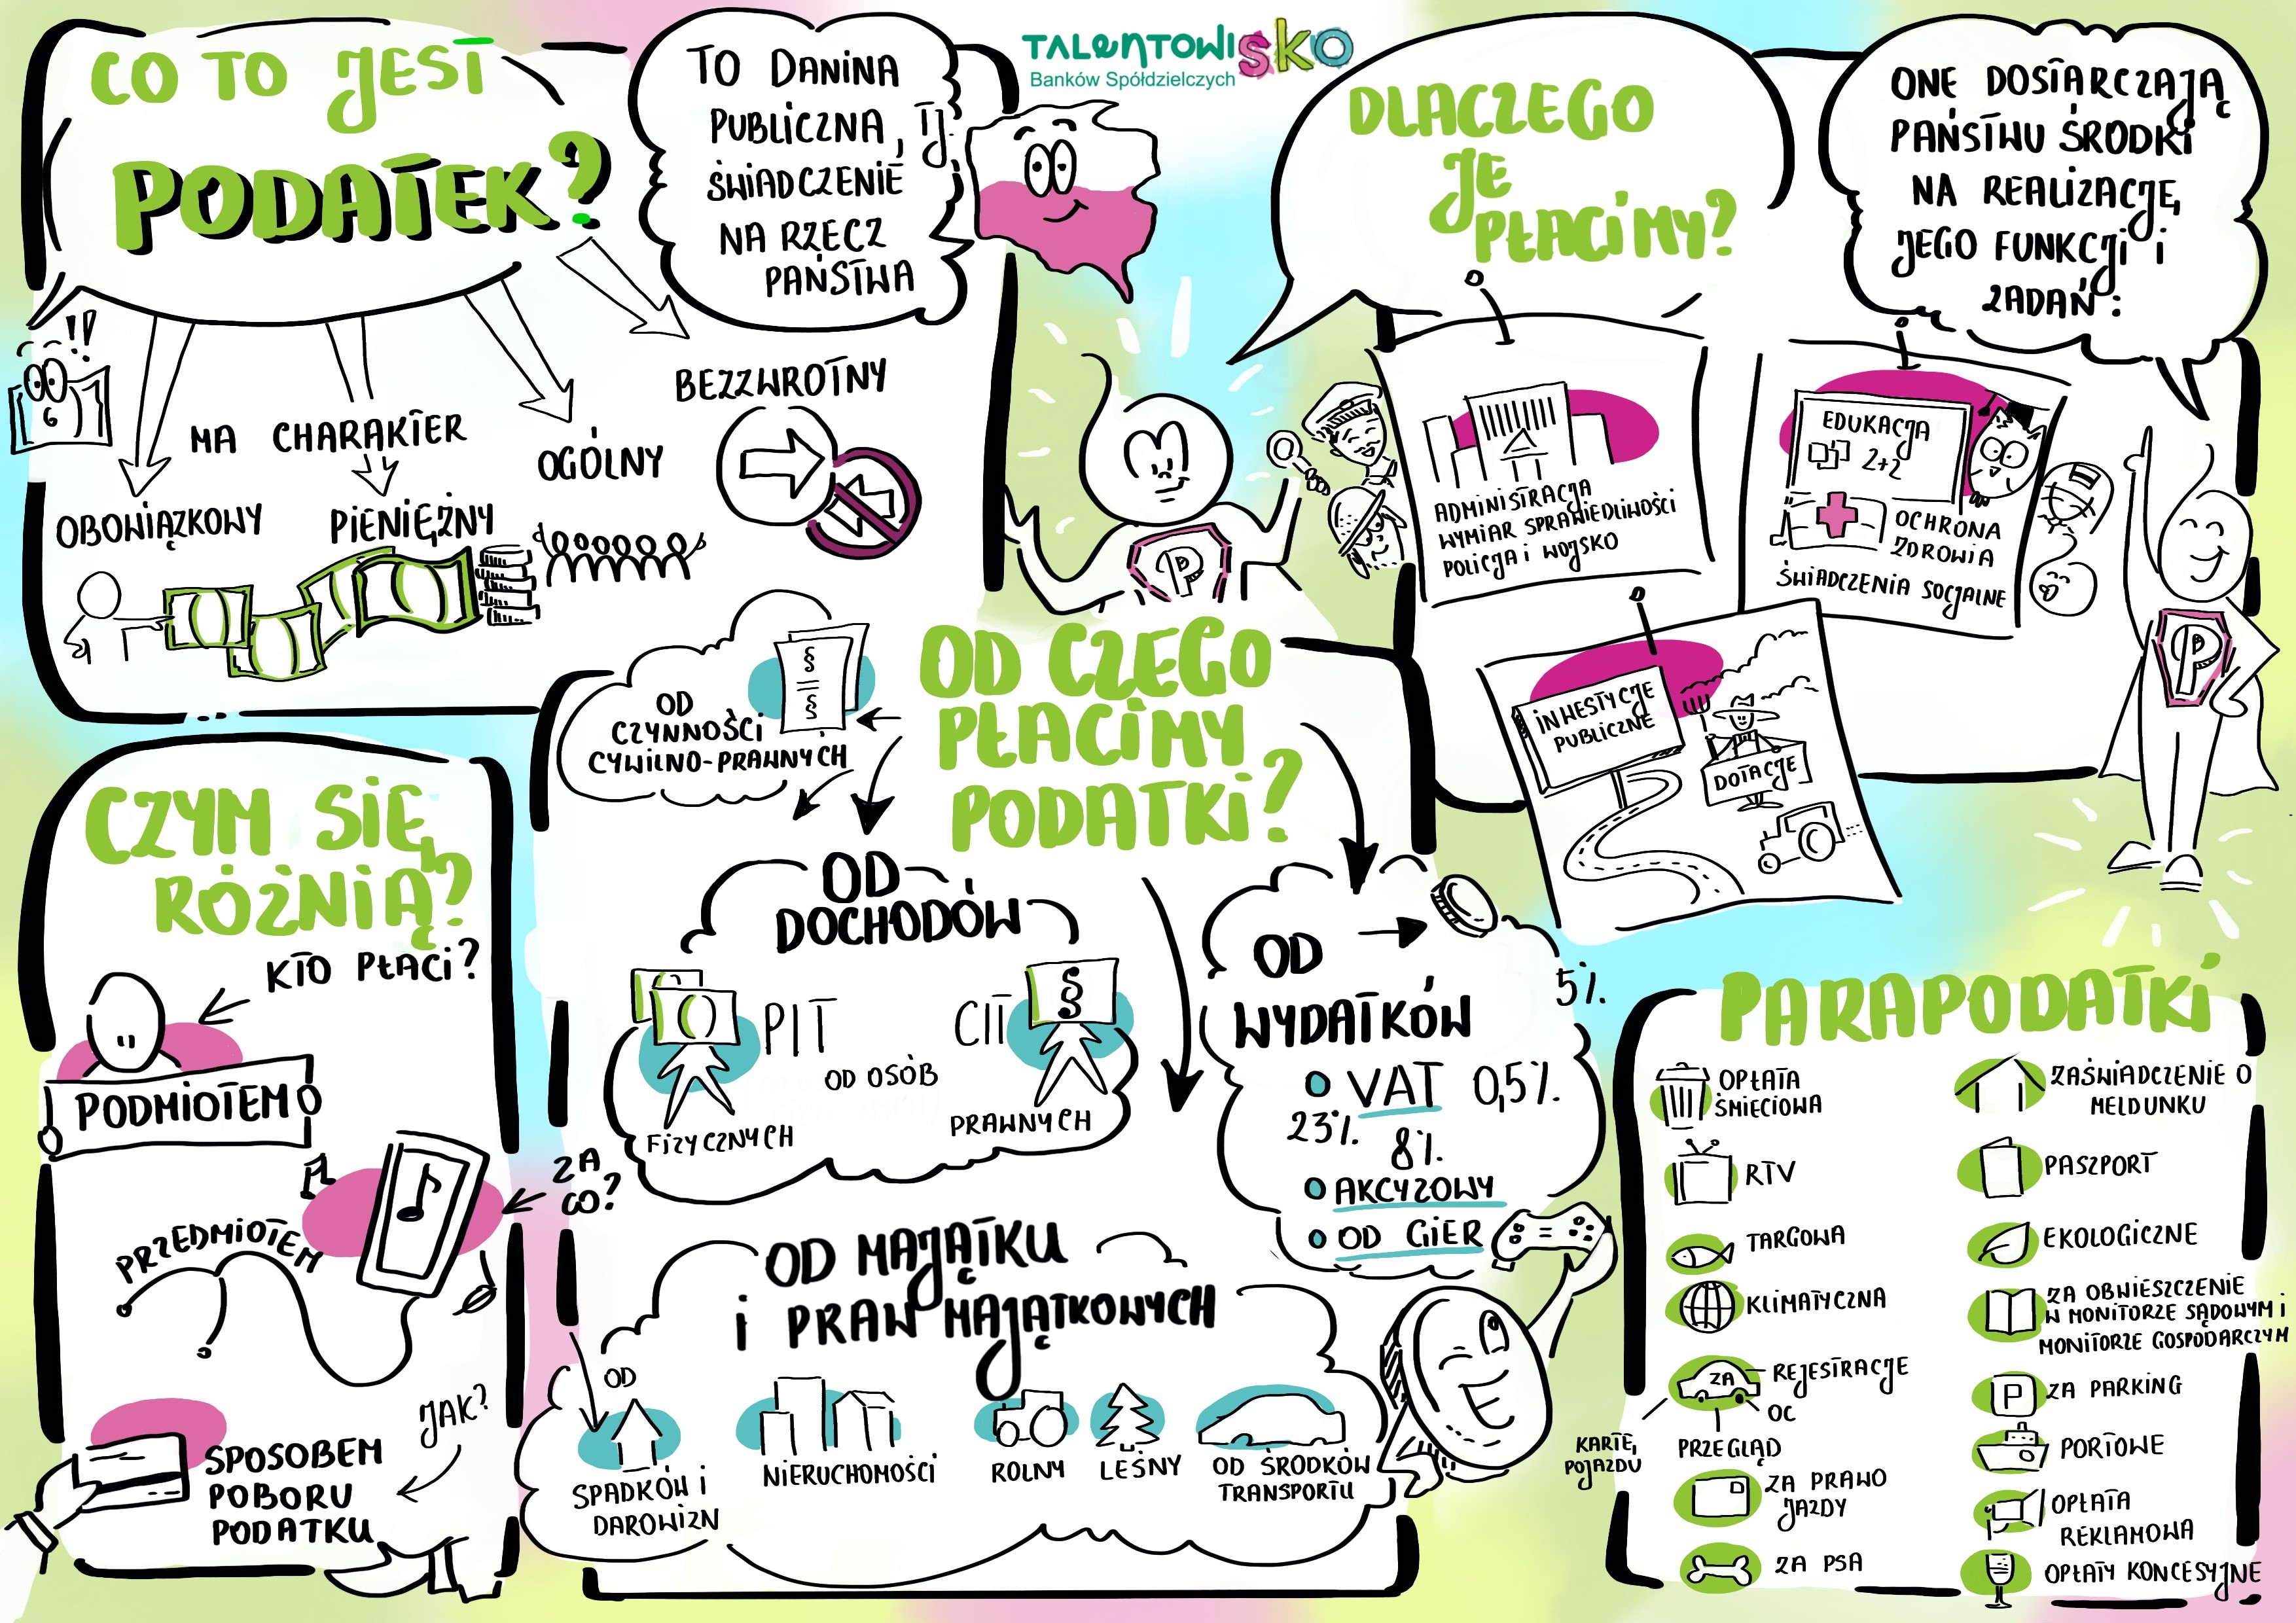 CO TO JEST
PODATEK?
TO DANINA
PUBLICZNA, TJ.
ŚWIADCZENIE
NA RZECZ
PAŃSTWA
!?
6
MA CHARAKTER
OBOWIĄZKOWY
PIENIĘŻNY
OGÓLNY
BEZZWROTNY
TALENTOWISKO
Banków Spółdzielczych
DLACZEGO
JE
PŁACIMY?
ONE DOSTARCZAJĄ
PAŃSTWU ŚRODKI
NA REALIZACJĘ
JEGO FUNKCJI I
ZADAŃ:
P
ADMINISTRACJA
WYMIAR SPRAWIEDLIWOŚCI
POLICJA I WOJSKO
EDUKACJA
2+2
OCHRONA
ZDROWIA
ŚWIADCZENIA SOCJALNE
INWESTYCJE
PUBLICZNE
DOTACJE
P
OD CZEGO
PŁACIMY
PODATKI?
§
§
OD
CZYNNOŚCI
CYWILNO-PRAWNYCH
OD
DOCHODÓW
PIT
CIT
§
OD OSÓB
FIZYCZNYCH
PRAWNYCH
OD
WYDATKÓW
5%
VAT 0,5%
23%
8%
AKCYZOWY
OD GIER
OD MAJĄTKU
I PRAW MAJĄTKOWYCH
OD
SPADKÓW I
DAROWIZN
NIERUCHOMOŚCI
ROLNY
LEŚNY
OD ŚRODKÓW
TRANSPORTU
CZYM SIĘ
RÓŻNIĄ?
KTO PŁACI?
PODMIOTEM
ZA
CO?
PRZEDMIOTEM
JAK?
SPOSOBEM
POBORU
PODATKU
PARAPODATKI
OPŁATA
ŚMIECIOWA
RTV
TARGOWA
KLIMATYCZNA
ZA
REJESTRACJĘ
OC
KARTĘ
POJAZDU
PRZEGLĄD
ZA PRAWO
JAZDY
ZA PSA
ZAŚWIADCZENIE O
MELDUNKU
PASZPORT
EKOLOGICZNE
ZA OBWIESZCZENIE
W MONITORZE SĄDOWYM I
MONITORZE GOSPODARCZYM
P
ZA PARKING
PORTOWE
OPŁATA
REKLAMOWA
OPŁATY KONCESYJNE